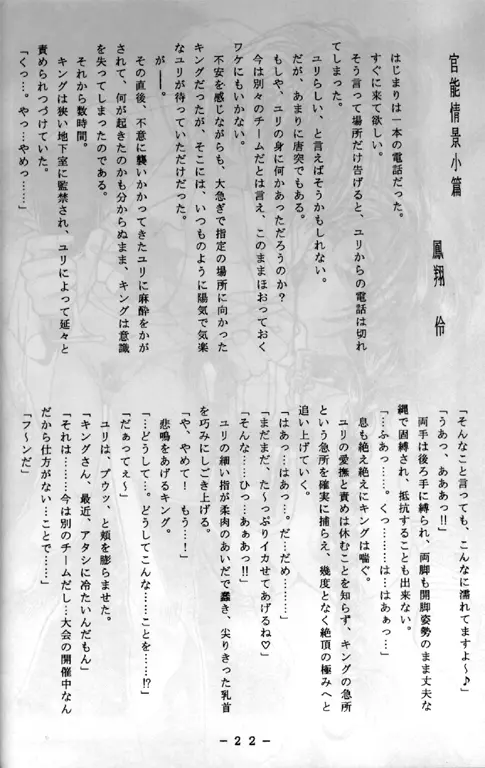 官能情景小篇
鳳翔 伶
はじまりは一本の電話だった。
すぐに来て欲しい。
そう言って場所だけ告げると、ユリからの電話は切れ
てしまった。
ユリらしい、と言えばそうかもしれない。
だが、あまりに唐突でもある。
もしや、ユリの身に何かあっただろうのか?
今は別々のチームだとは言え、このままほおっておく
ワケにもいかない。
不安を感じながらも、大急ぎで指定の場所に向かった
キングだったが、そこには、いつものように陽気で気楽
なユリが待っていただけだった。
が――。
その直後、不意に襲いかかってきたユリに麻酔をかが
されて、何が起きたのかも分からぬまま、キングは意識
を失ってしまったのである。
それから数時間。
キングは狭い地下室に監禁され、ユリによって延々と
責められつづけていた。
「くっ…。やっ…やめっ……」
「そんなこと言っても、こんなに濡れてますよ~♪」
「うあっ、あああっ!!」
両手は後ろ手に縛られ、両脚も開脚姿勢のまま丈夫な
縄で固縛され、抵抗することも出来ない。
「…ふあっ…。くっ………は…はあぁっ…」
息も絶え絶えにキングは喘ぐ。
ユリの愛撫と責めは休むことを知らず、キングの急所
という急所を確実に捕らえ、幾度となく絶頂の極みへと
追い上げていく。
「はあっ…はあっ…。だ…だめ………」
「まだまだ、た~っぷりイカせてあげるね♡」
「そんな……ひっ…あぁあっ!!」
ユリの細い指が柔肉のあいだで蠢き、尖りきった乳首
を巧みにしごき上げる。
「や、やめて! もう…!」
悲鳴をあげるキング。
「…どうして…。どうしてこんな……ことを……!?」
「だぁってぇ~」
ユリは、プウッ、と頬を膨らませた。
「キングさん、最近、アタシに冷たいんだもん」
「それは………今は別のチームだし…大会の開催中なん
だから仕方がない…ことで……」
「フ~ンだ」
-22-